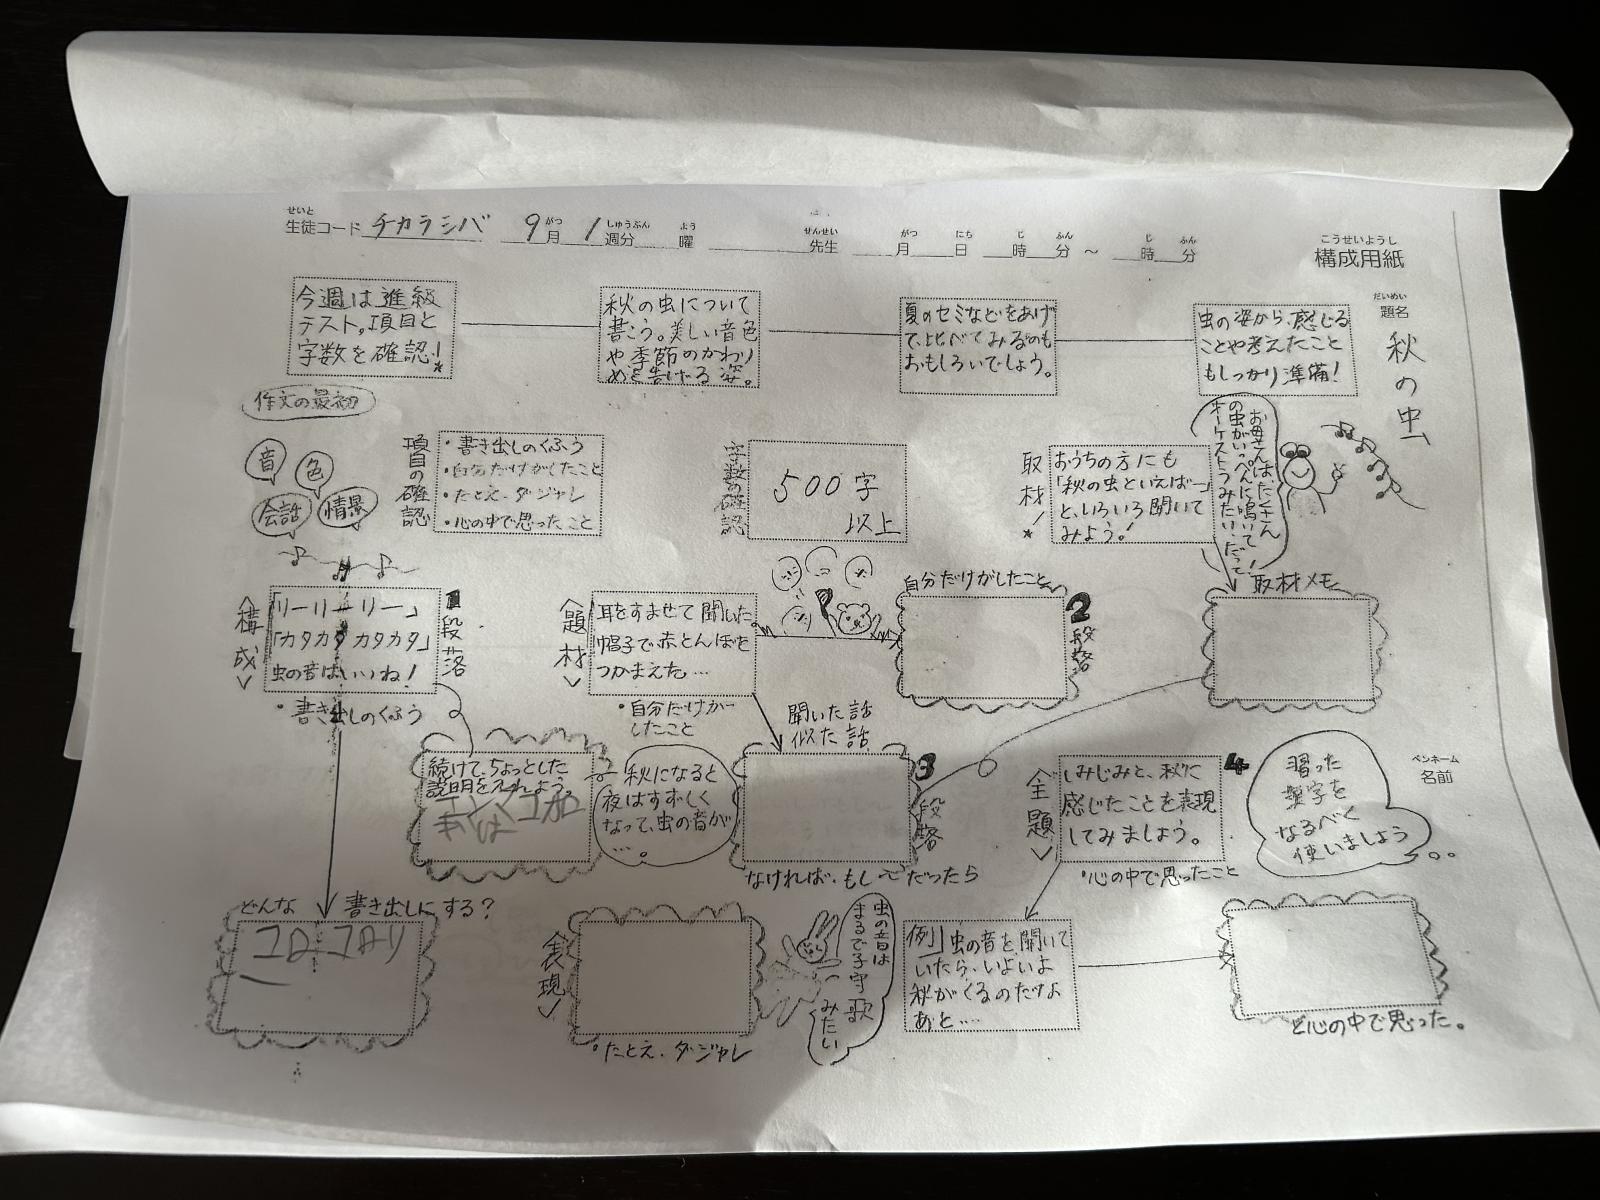 せいと
生徒コード チカラシバ 9月 1週分 曜 先生 月 日 時 分 ～ 時 分
がつ しゅうぶん よう せんせい がつ にち じ ふん じ ふん
こうせいようし
構成用紙
だいめい
題名
秋の虫
虫の姿から、感じる
ことや考えたこと
もしっかり準備!
夏のセミなどをあげ
て、比べてみるのも
おもしろいでしょう。
秋の虫について
書こう。美しい音色
や季節のかわり
めを告げる姿。
今週は進級
テスト。項目と
字数を確認!
作文の最初
音
色
会話
情景
項目の確認
・書き出しのくふう
・自分だけがしたこと
・たとえ、ダジャレ
・心の中で思ったこと
字数の確認
500字
以上
取材!
おうちの方にも
「秋の虫といえば…」
と、いろいろ聞いて
みよう!
お母さんは、たくさん
の虫がいっぺんに鳴いて、
オーケストラみたい、だって!
取材メモ
〈構成〉
1段落
「リーリーリー」
「カタカタカタカタ」
虫の音はいいね!
・書き出しのくふう
〈題材〉
耳をすませて聞いた。
帽子で赤とんぼを
つかまえた…
・自分だけが
したこと
自分だけがしたこと
2段落
聞いた話
似た話
3段落
なければ、もし〜だったら
続けて、ちょっとした
説明を入れよう。
秋になると
夜はすずしく
なって、虫の音が
…。
〈主題〉
4
しみじみと、秋に
感じたことを表現
してみましょう。
・心の中で思ったこと
習った
漢字を
なるべく
使いましょう
ペンネーム
名前
どんな 書き出しにする?
コロコロリ
〈表現〉
・たとえ、ダジャレ
虫の音は
まるで子守歌
みたい
例 虫の音を聞いて
いたら、いよいよ
秋がくるのだな
あと…
と心の中で思った。